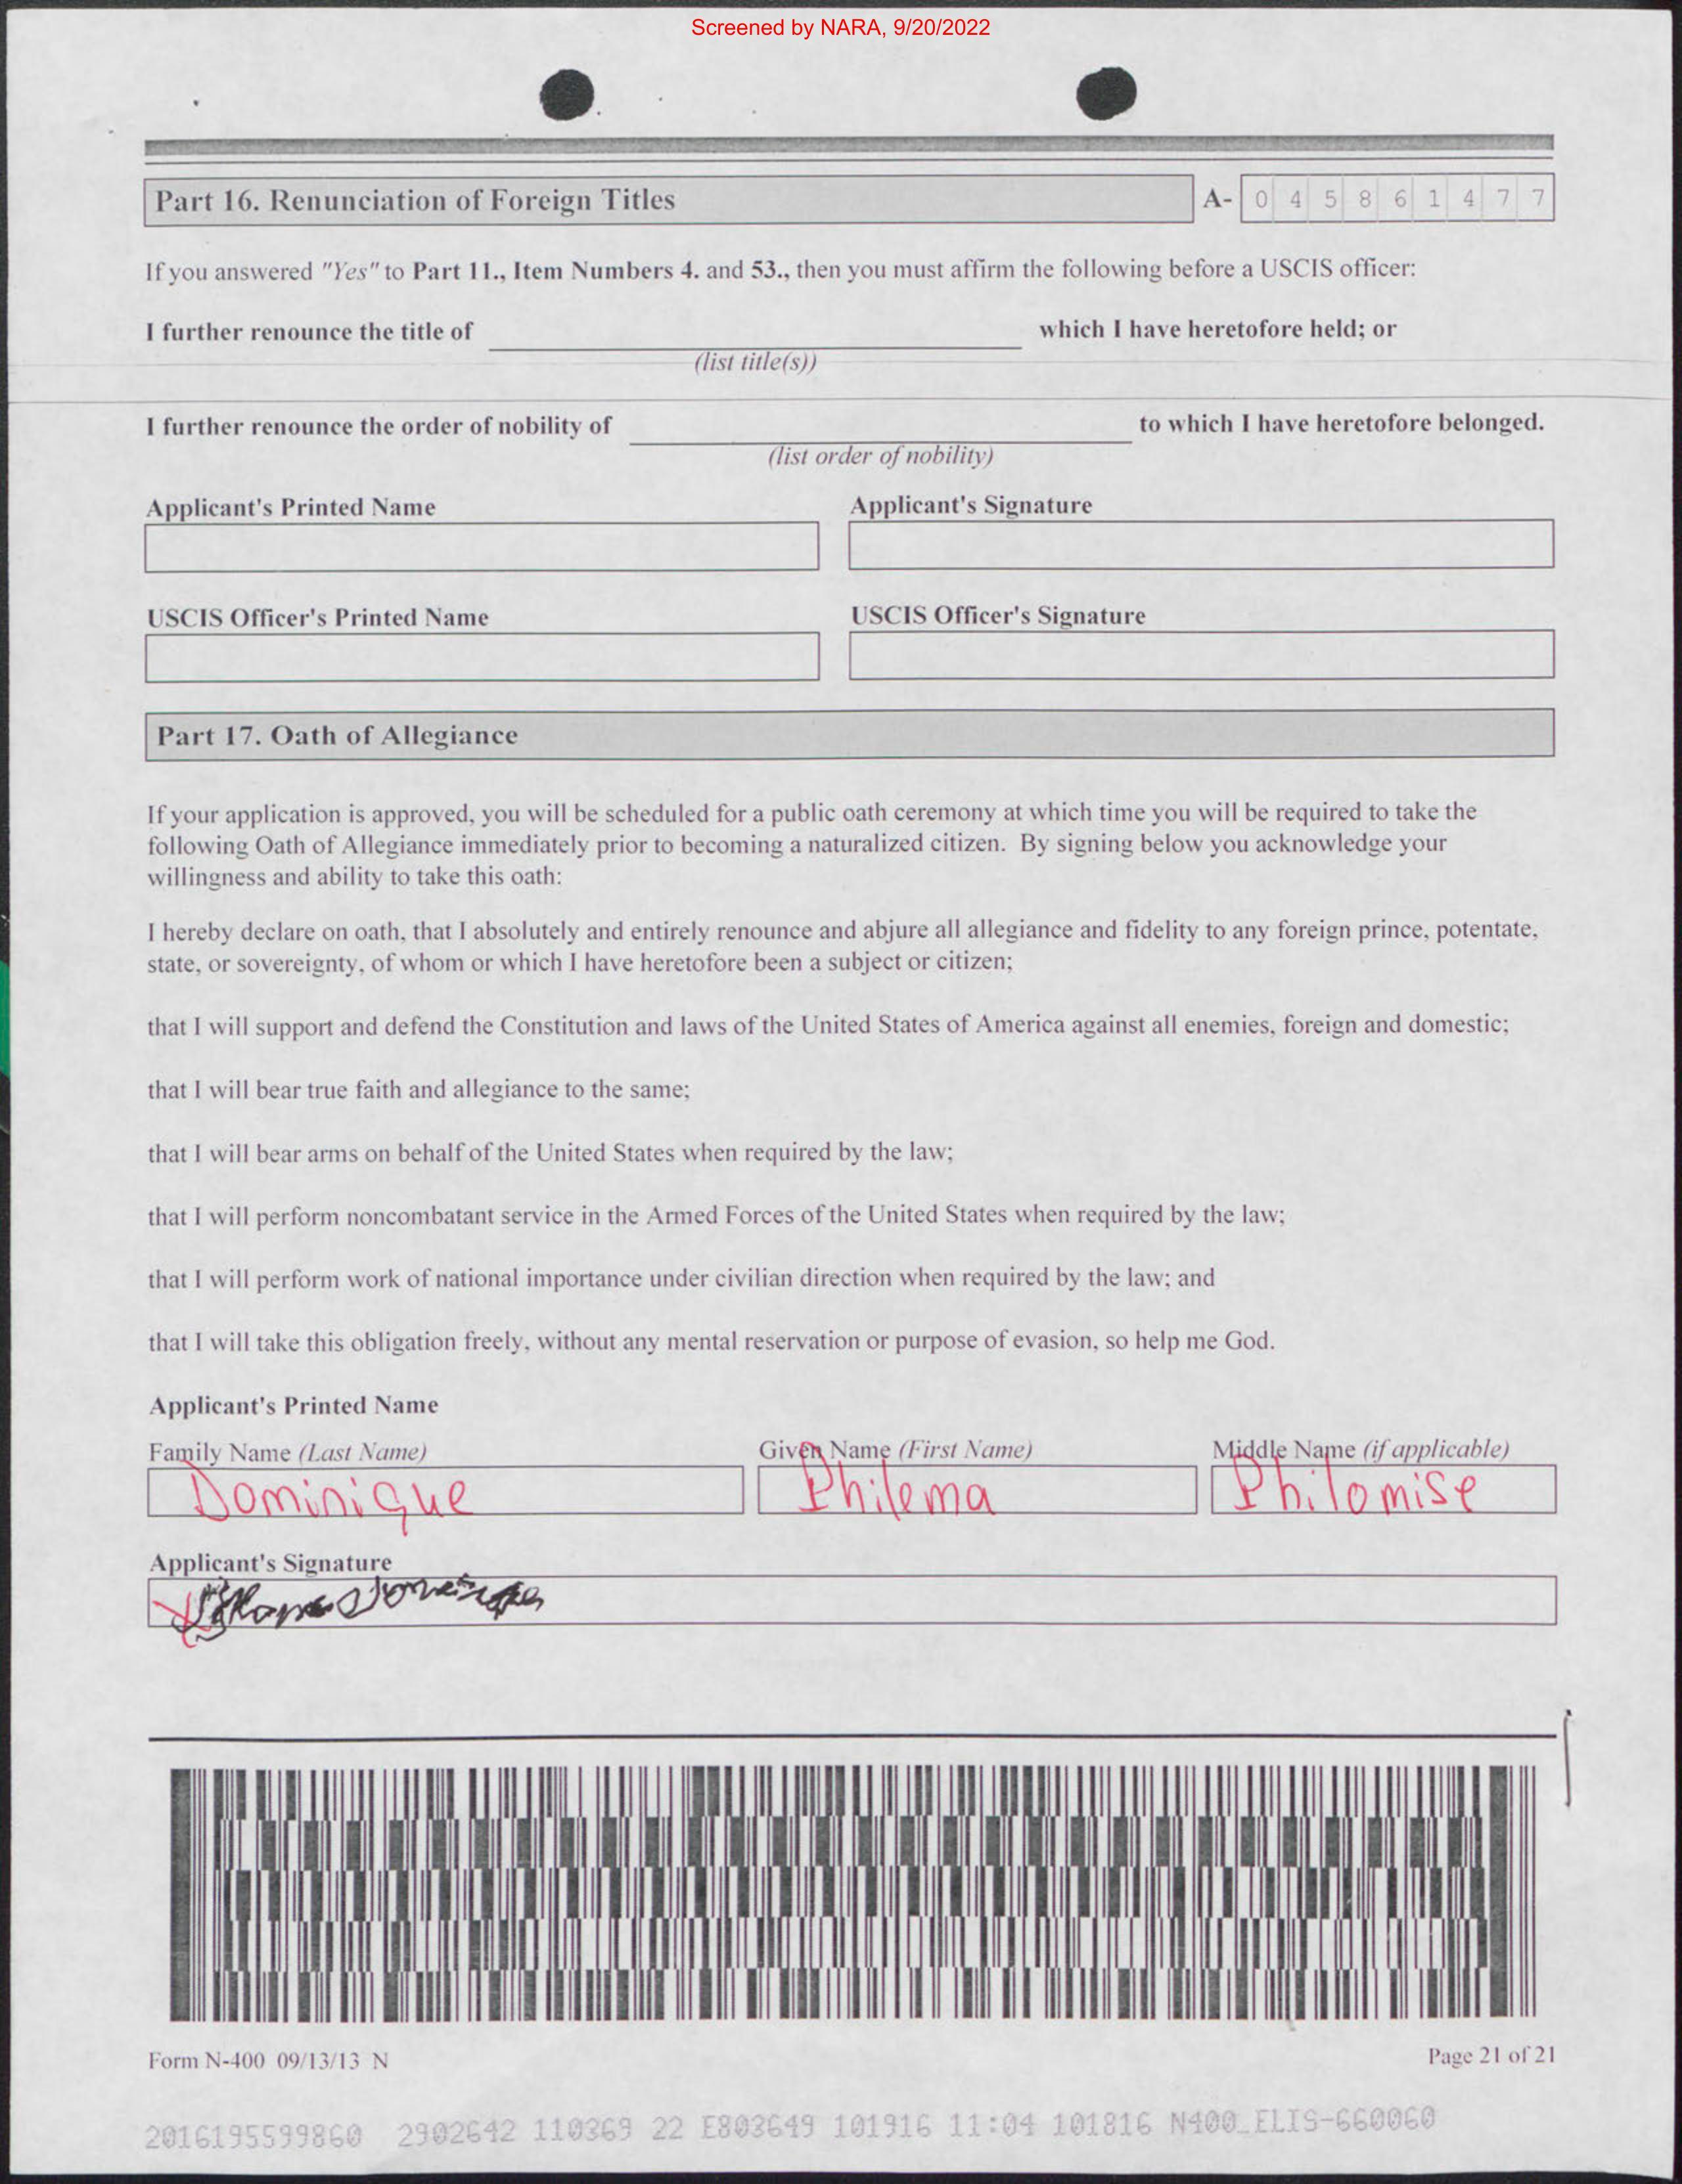 Screened by NARA, 9/20/2022
Part 16. Renunciation of Foreign Titles
A- 0 4 5 8 6 1 4 7 7
If you answered "Yes" to Part 11., Item Numbers 4. and 53., then you must affirm the following before a USCIS officer:
I further renounce the title of which I have heretofore held; or
(list title(s))
I further renounce the order of nobility of to which I have heretofore belonged.
(list order of nobility)
Applicant's Printed Name Applicant's Signature
USCIS Officer's Printed Name USCIS Officer's Signature
Part 17. Oath of Allegiance
If your application is approved, you will be scheduled for a public oath ceremony at which time you will be required to take the
following Oath of Allegiance immediately prior to becoming a naturalized citizen. By signing below you acknowledge your
willingness and ability to take this oath:
I hereby declare on oath, that I absolutely and entirely renounce and abjure all allegiance and fidelity to any foreign prince, potentate,
state, or sovereignty, of whom or which I have heretofore been a subject or citizen;
that I will support and defend the Constitution and laws of the United States of America against all enemies, foreign and domestic;
that I will bear true faith and allegiance to the same;
that I will bear arms on behalf of the United States when required by the law;
that I will perform noncombatant service in the Armed Forces of the United States when required by the law;
that I will perform work of national importance under civilian direction when required by the law; and
that I will take this obligation freely, without any mental reservation or purpose of evasion, so help me God.
Applicant's Printed Name
Family Name (Last Name) Given Name (First Name) Middle Name (if applicable)
Dominique Philema Philomise
Applicant's Signature
Form N-400 09/13/13 N Page 21 of 21
2016195599860 2902642 110369 22 E803649 101916 11:04 101816 N400_ELIS-660060